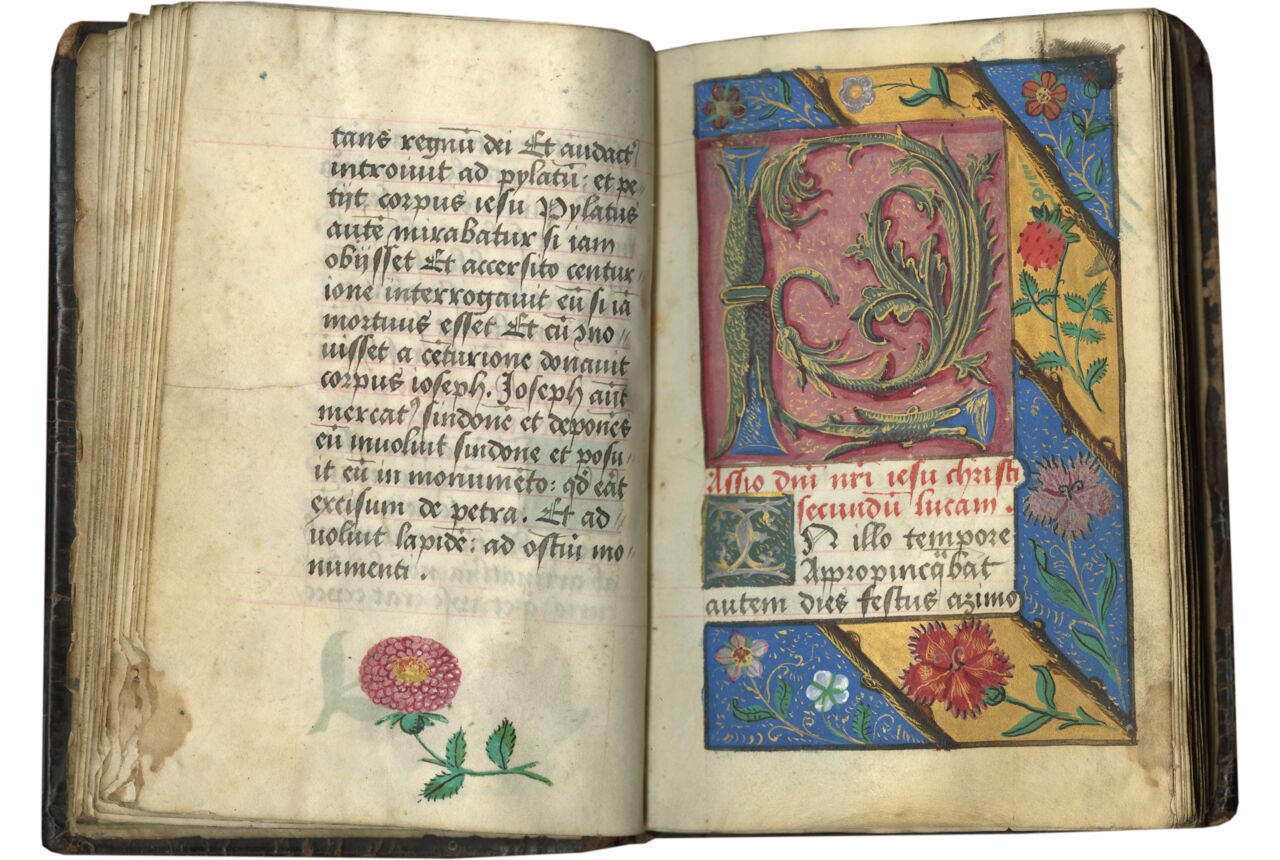 tans regnū dei Et audact᷒
introiuit ad pylatū: et pe-
tijt corpus iesu Pylatus
autē mirabatur si iam
obijsset Et accersito centur-
ione interrogauit eū si iā
mortuus esset Et cū ⁊no-
uisset a cēturione donauit
corpus ioseph. Joseph aūt
mercat᷒ sindonē et deponēs
eū inuoluit sindone et posu-
it eū in monumēto: qd̄ eāt
excisum de petra. Et ad-
uoluit lapidē: ad ostiū mo-
numenti.
Assio dnī nrī iesu christi
secundū lucam.
IN illo tempore
Appropinq̄bat
autem dies festus azimo